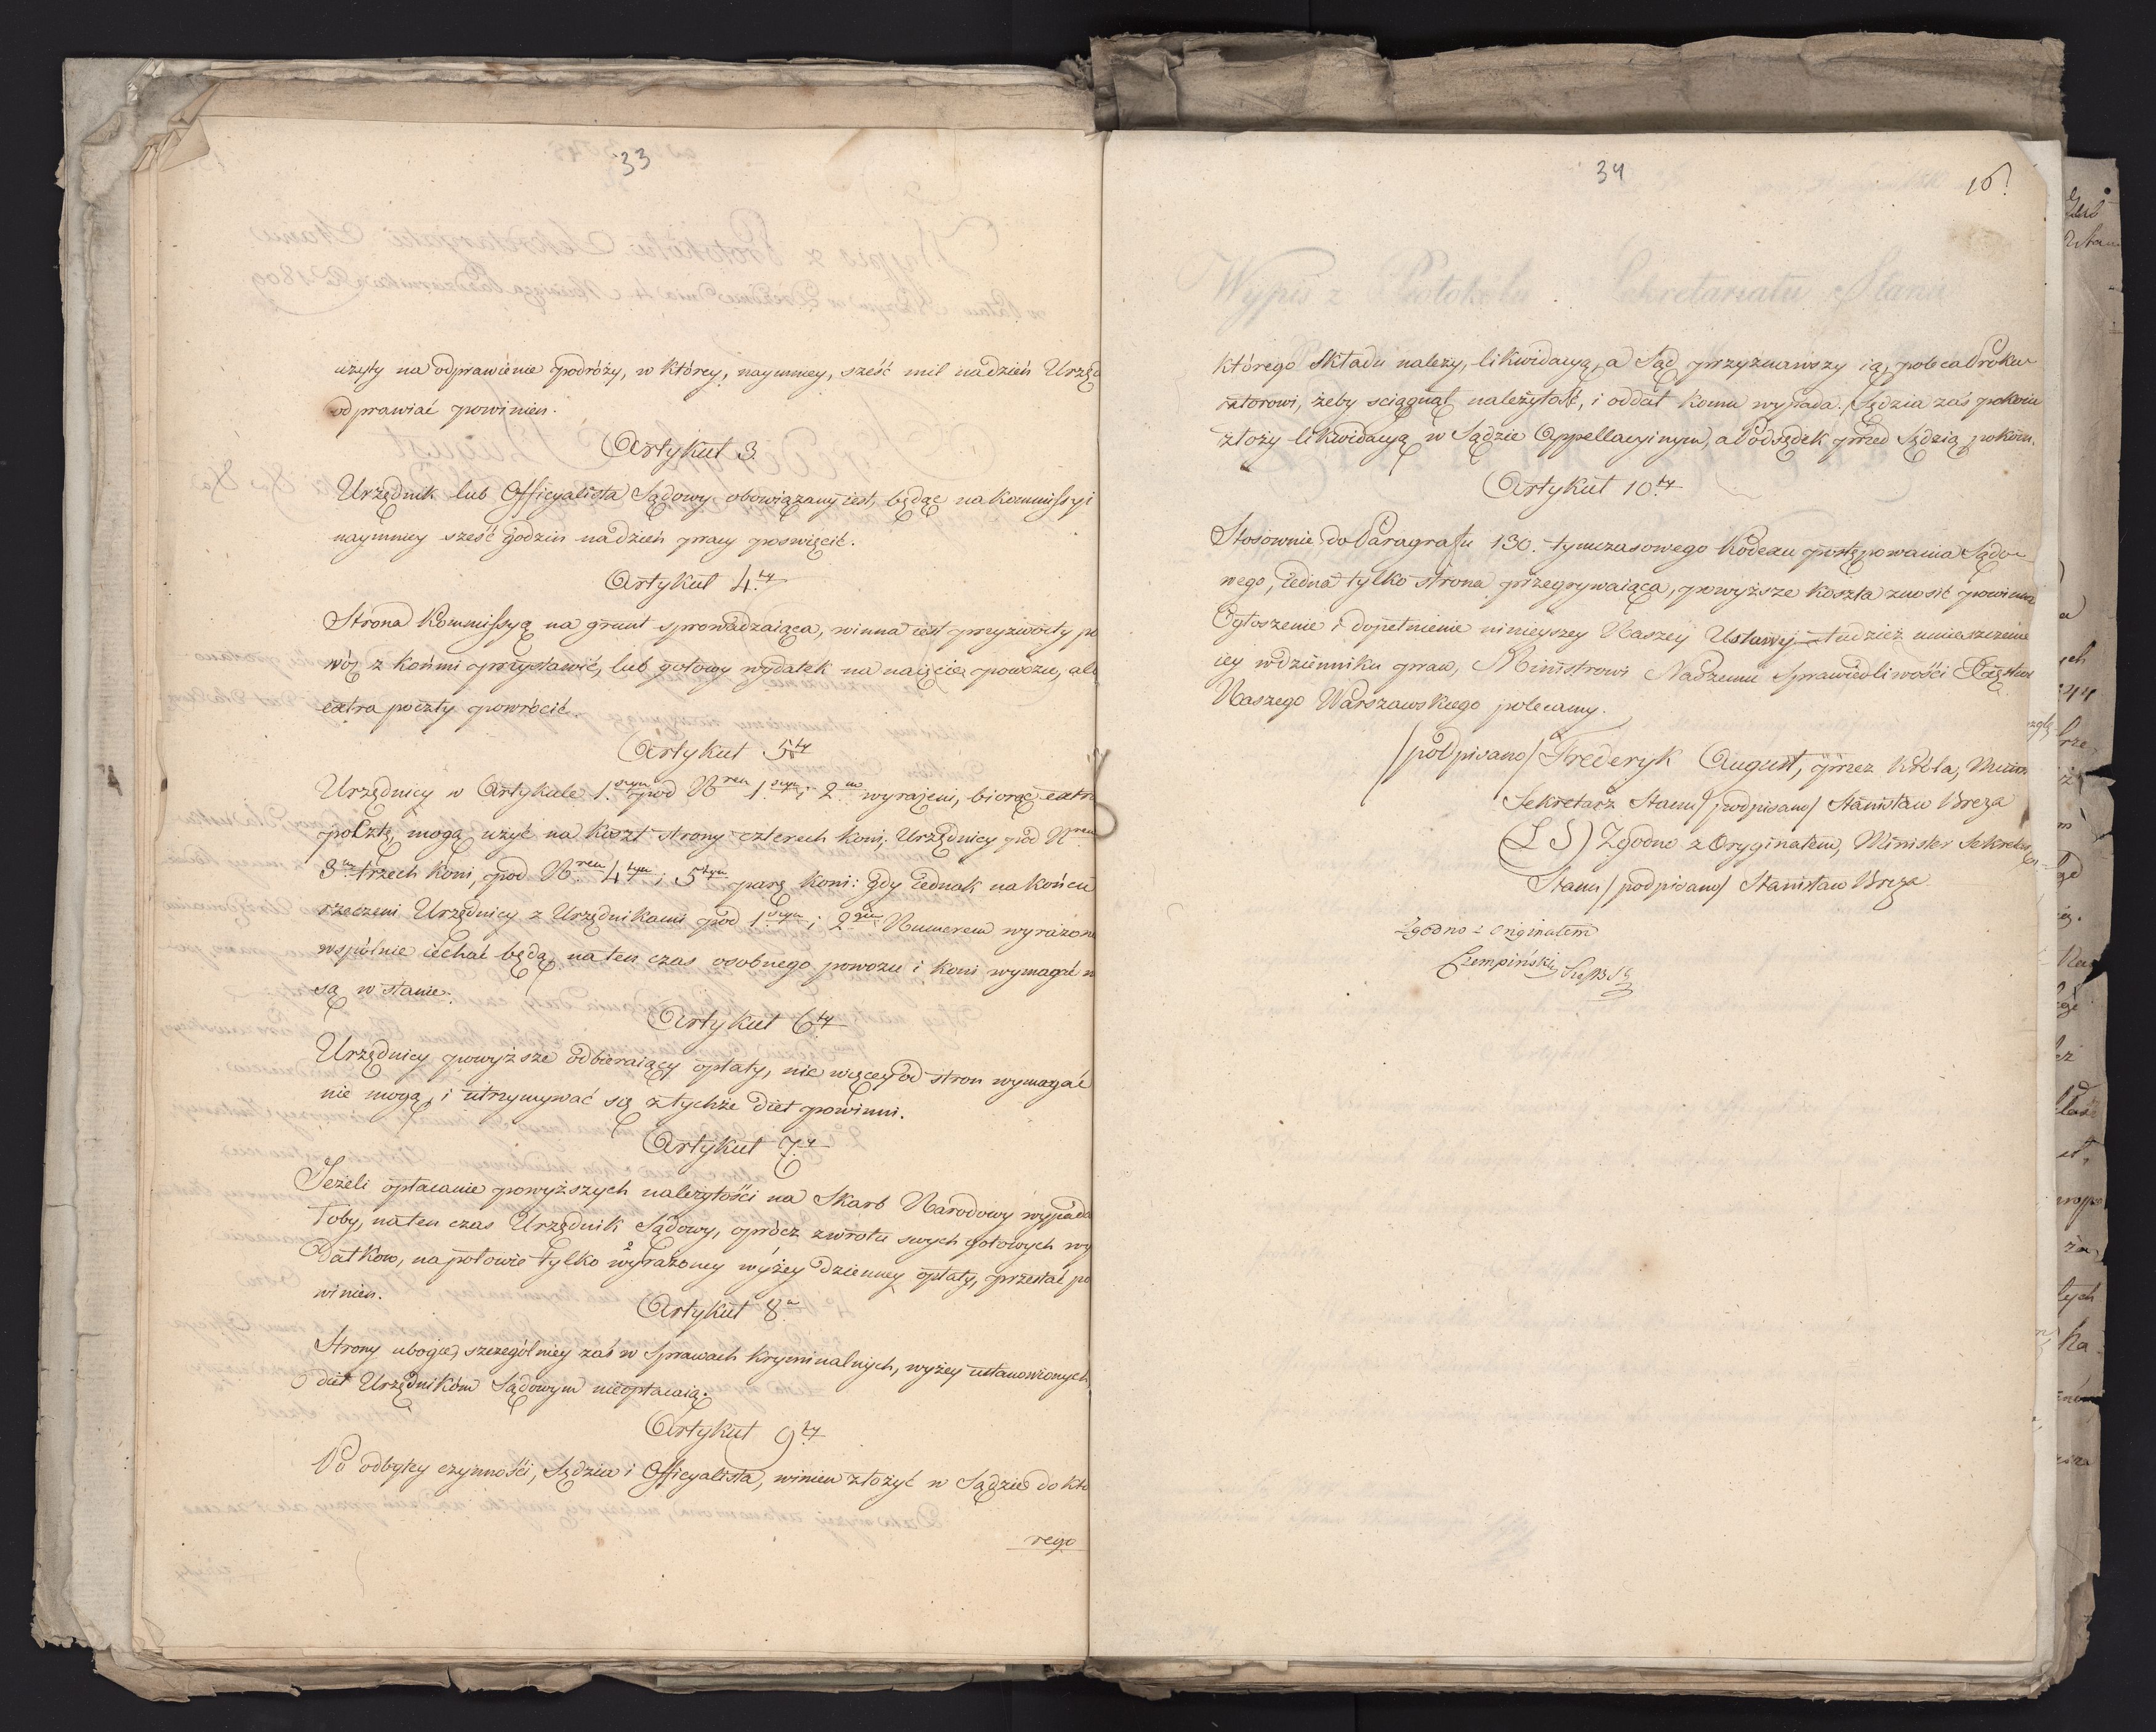 33
użyty na odprawienie podróży, w którey, naymniey, sześć mil na dzień Urzęd
odprawiać powinien.
Artykuł 3.
Urzędnik lub Officyalista Sądowy obowiązany iest, będąc na kommissyi
naymniey sześć godzin na dzień pracy poswięcić.
Artykuł 4.ty
Strona Kommissyą na grunt sprowadzaiąca, winna iest przyzwoity po
wóz z końmi przystawić, lub gotowy wydatek na naięcie powozu, alb
extra poczty powrócić.
Artykuł 5ty
Urzędnicy w Artykule 1.szym pod Nrem 1.szym i 2.m wyrażeni, biorąc extra
pocztę, mogą użyć na koszt strony czterech koni. Urzędnicy pod Nrem
3.m trzech koni, pod Nrem 4tym i 5tym parę koni: gdy iednak na końcu
rzeczeni Urzędnicy z Urzędnikami pod 1.szym i 2.gim Numerem wyrażone
wspólnie iechać będą, na ten czas osobnego powozu i koni wymagać n
są w stanie.
Artykuł 6ty
Urzędnicy powyższe odbieraiący opłaty, nic więcey od stron wymagać
nie mogą, i utrzymywać się z tychże diet powinni.
Artykuł 7.y
Jeżeli opłacanie powyższych należytości na Skarb Narodowy wypada
łoby, na ten czas Urzędnik Sądowy, oprócz zwrotu swych gotowych wy
datków, na połowie tylko wyrażoney wyżey dzienney opłaty, przestać po
winien.
Artykuł 8.
Strony ubogie, szczególniey zaś w Sprawach Kryminalnych, wyżey ustanowionych
diet Urzędnikóm Sądowym nieopłacaią.
Artykuł 9.ty
Po odbytey czynności, Sędzia i Officyalista, winien złożyć w Sądzie do któ
rego
34
16
którego Składu należy, likwidacyą, a Sąd przyznawszy ią, poleca Proku
ratorowi, żeby sciągnął należytość, i oddał komu wypada. Sędzia zaś pokoiu
złoży likwidacyą w Sądzie Appellacyinym, a Podsędek przed Sędzią pokoiu.
Artykuł 10.ty
Stosownie do Paragrafu 130. tymczasowego Kodexu postępowania Sądo
wego, iedna tylko strona przegrywaiąca, powyższe koszta znosić powinna
Ogłoszenie i dopełnienie ninieyszey Naszey Ustawy tudzież umieszczenie
iey w dzienniku praw, Ministrowi Naszemu Sprawiedliwości Xięstwa
Naszego Warszawskiego polecamy.
/podpisano/ Frederyk August, przez Króla, Minis
Sekretarz Stanu /podpisano/ Stanisław Breza
(L S) Zgodno z Oryginałem, Minister Sekretarz
Stanu /podpisano/ Stanisław Breza.
Zgodno z Oryginałem
Czempiński